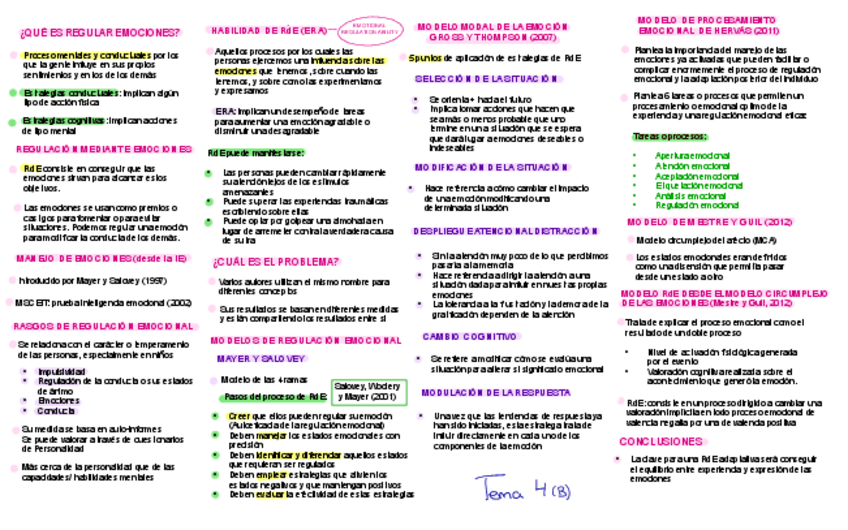 ¿QUÉ ES REGULAR EMOCIONES?
Procesos mentales y conductuales por los
que la gente influye en sus propios
sentimientos y en los de los demás
Estrategias conductuales: Implican algún
tipo de acción física
Estrategias cognitivas: Implican acciones
de tipo mental
REGULACIÓN MEDIANTE EMOCIONES
RdE consiste en conseguir que las
emociones sirvan para alcanzar estos
objetivos.
Las emociones se usan como premios o
castigos para fomentar o para evitar
situaciones. Podemos regular una emoción
para modificar la conducta de los demás.
MANEJO DE EMOCIONES (desde la IE)
Introducido por Mayer y Salovey (1997)
MSCEIT: prueba inteligencia emocional (2002)
RASGOS DE REGULACIÓN EMOCIONAL
Se relaciona con el carácter o temperamento
de las personas, especialmente en niños
Impulsividad
Regulación de la conducta o sus estados
de ánimo
Emociones
Conducta
Su medida se basa en auto-informes
Se puede valorar a través de cuestionarios
de Personalidad
Más cerca de la personalidad que de las
capacidades/ habilidades mentales
HABILIDAD DE RdE (ERA)
EMOTIONAL
REGULATION ABILITY
Aquellos procesos por los cuales las
personas ejercemos una influencia sobre las
emociones que tenemos, sobre cuando las
tenemos, y sobre como las experimentamos
y expresamos
ERA: Implican un desempeño de tareas
para aumentar una emoción agradable o
disminuir una desagradable
RdE puede manifestarse:
Las personas pueden cambiar rápidamente
su atención lejos de los estímulos
amenazantes
Puede superar las experiencias traumáticas
escribiendo sobre ellas
Puede optar por golpear una almohada en
lugar de arremeter contra la verdadera causa
de su ira
¿CUÁL ES EL PROBLEMA?
Varios autores utilizan el mismo nombre para
diferentes conceptos
Sus resultados se basan en diferentes medidas
y están compartiendo los resultados entre sí
MODELOS DE REGULACIÓN EMOCIONAL
MAYER Y SALOVEY
Modelo de las 4 ramas
Pasos del proceso de RdE:
Salovey, Woolery
y Mayer (2001)
Creer que ellos pueden regular su emoción
(Autoeficacia de la regulación emocional)
Deben manejar los estados emocionales con
precisión
Deben identificar y diferenciar aquellos estados
que requieran ser regulados
Deben emplear estrategias que alivien los
estados negativos y que mantengan positivos
Deben evaluar la efectividad de estas estrategias
MODELO MODAL DE LA EMOCIÓN
GROSS Y THOMPSON (2007)
5 puntos de aplicación de estrategias de RdE
SELECCIÓN DE LA SITUACIÓN
Se orienta + hacia el futuro
Implica tomar acciones que hacen que
sea más o menos probable que uno
termine en una situación que se espera
que dará lugar a emociones deseables o
indeseables
MODIFICACIÓN DE LA SITUACIÓN
Hace referencia a cómo cambiar el impacto
de una emoción modificando una
determinada situación
DESPLIEGUE ATENCIONAL DISTRACCIÓN
Sin la atención muy poco de lo que percibimos
pasaría a la memoria
Hace referencia a dirigir la atención a una
situación dada para influir en nuestras propias
emociones
La tolerancia a la frustración y la demora de la
gratificación dependen de la atención
CAMBIO COGNITIVO
Se refiere a modificar cómo se evalúa una
situación para alterar si significado emocional
MODULACIÓN DE LA RESPUESTA
Una vez que las tendencias de respuesta ya
han sido iniciadas, esta estrategia trata de
influir directamente en cada uno de los
componentes de la emoción
Tema 4 (B)
MODELO DE PROCESAMIENTO
EMOCIONAL DE HERVÁS (2011)
Plantea la importancia del manejo de las
emociones ya activadas que pueden facilitar o
complicar enormemente el proceso de regulación
emocional y la adaptación posterior del individuo
Plantea 6 tareas o procesos que permiten un
procesamiento emocional optimo de la
experiencia y una regulación emocional eficaz
Tareas o procesos:
Apertura emocional
Atención emocional
Aceptación emocional
Etiquetación emocional
Análisis emocional
Regulación emocional
MODELO DE MESTRE Y GUIL (2012)
Modelo circumplejo del afecto (MCA)
Los estados emocionales eran definidos
como una disensión que permita pasar
desde un estado a otro
MODELO RdE DESDE EL MODELO CIRCUMPLEJO
DE LAS EMOCIONES (Mestre y Guil, 2012)
Trata de explicar el proceso emocional como el
resultado de un doble proceso
Nivel de activación fisiológica generada
por el evento
Valoración cognitiva realizada sobre el
acontecimiento que generó la emoción.
RdE: consiste en un proceso dirigido a cambiar una
valoración implícita en todo proceso emocional de
valencia negativa por una de valencia positiva
CONCLUSIONES
La clave para una RdE adaptativa será conseguir
el equilibrio entre experiencia y expresión de las
emociones